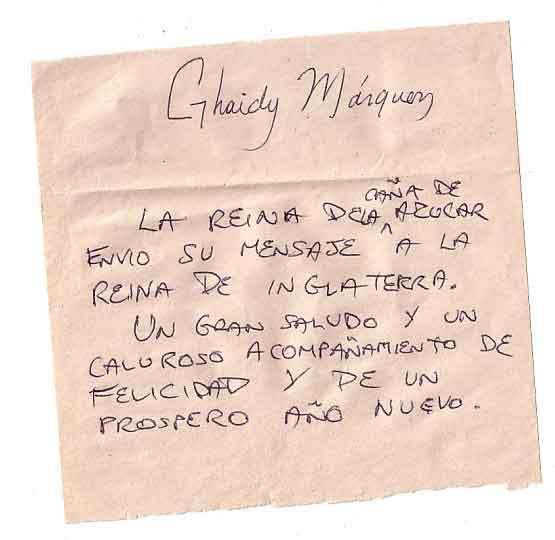 Ghaidy Márquez
CAÑA DE
LA REINA DELA AZUCAR
ENVIO SU MENSAJE A LA
REINA DE INGLATERRA.
UN GRAN SALUDO Y UN
CALUROSO ACOMPAÑAMIENTO DE
FELICIDAD Y DE UN
PROSPERO AÑO NUEVO.